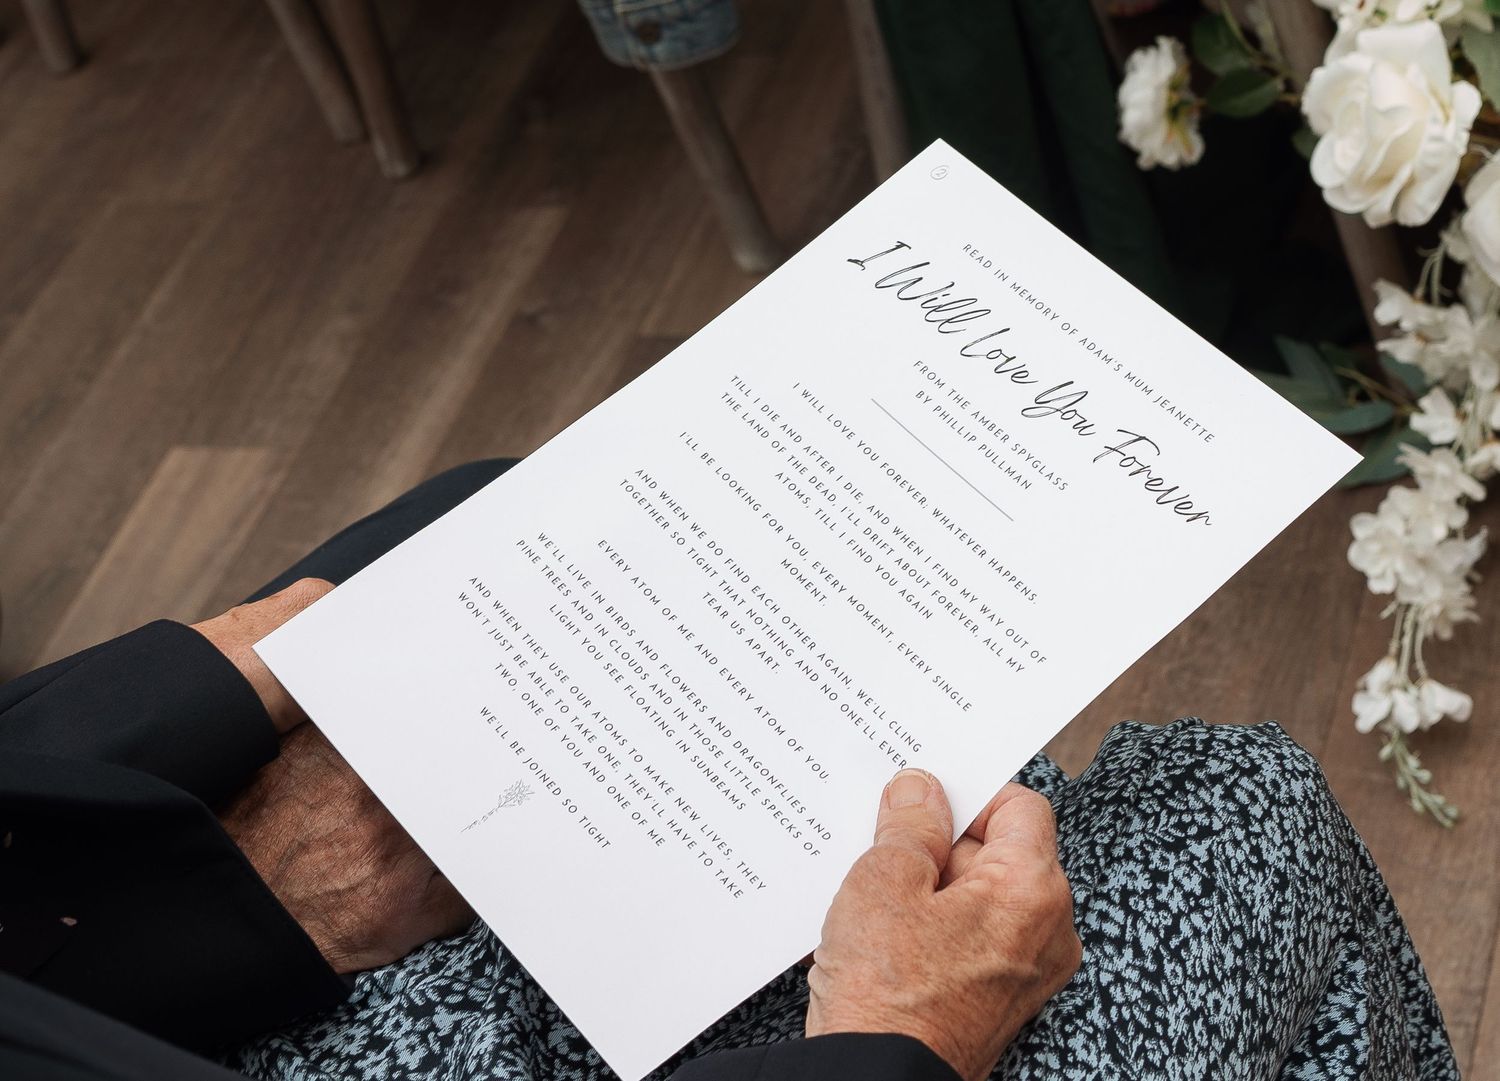 2
READ IN MEMORY OF ADAM'S MUM JEANETTE
I Will Love You Forever
FROM THE AMBER SPYGLASS
BY PHILLIP PULLMAN
I WILL LOVE YOU FOREVER, WHATEVER HAPPENS.
TILL I DIE AND AFTER I DIE, AND WHEN I FIND MY WAY OUT OF
THE LAND OF THE DEAD, I'LL DRIFT ABOUT FOREVER, ALL MY
ATOMS, TILL I FIND YOU AGAIN
I'LL BE LOOKING FOR YOU, EVERY MOMENT, EVERY SINGLE
MOMENT.
AND WHEN WE DO FIND EACH OTHER AGAIN, WE'LL CLING
TOGETHER SO TIGHT THAT NOTHING AND NO ONE'LL EVER
TEAR US APART.
EVERY ATOM OF ME AND EVERY ATOM OF YOU.
WE'LL LIVE IN BIRDS AND FLOWERS AND DRAGONFLIES AND
PINE TREES AND IN CLOUDS AND IN THOSE LITTLE SPECKS OF
LIGHT YOU SEE FLOATING IN SUNBEAMS
AND WHEN THEY USE OUR ATOMS TO MAKE NEW LIVES, THEY
WON'T JUST BE ABLE TO TAKE ONE, THEY'LL HAVE TO TAKE
TWO, ONE OF YOU AND ONE OF ME
WE'LL BE JOINED SO TIGHT